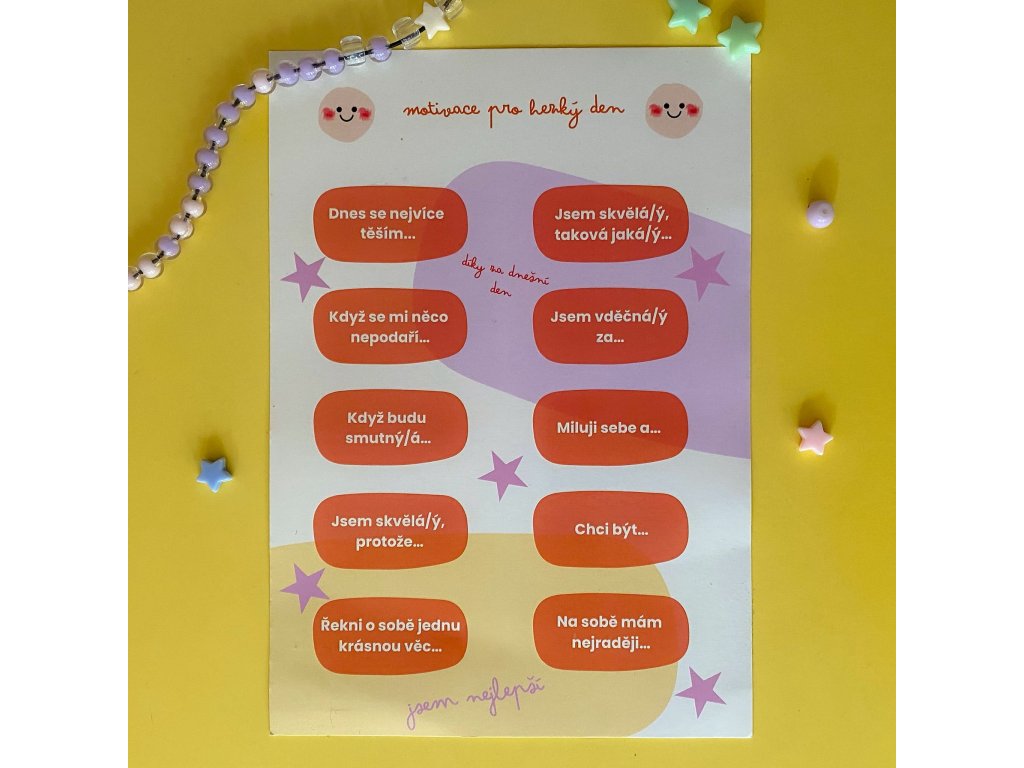 motivace pro hezký den
Dnes se nejvíce
těším...
Jsem skvělá/ý,
taková jaká/ý...
díky za dnešní
den
Když se mi něco
nepodaří...
Jsem vděčná/ý
za...
Když budu
smutný/á...
Miluji sebe a...
Jsem skvělá/ý,
protože...
Chci být...
Řekni o sobě jednu
krásnou věc...
Na sobě mám
nejraději...
jsem nejlepší